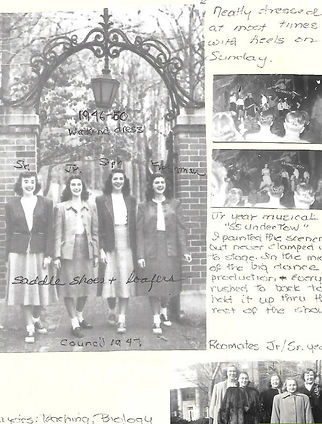 Neatly dressed
at most times
with heels on
Sunday.
1946-50
Walkend dress
Sr. Jr. Soph
Saddle Shoes + Loafers
Council 1947
Jr year musical
"SS Undertow"
I painted the scener
but never clamped
to stage. In the
of the big dance
production & Every
rushed to back to
hold it up thru th
rest of the show
Roomates Jr/Sr. yea
Teaching, Biology